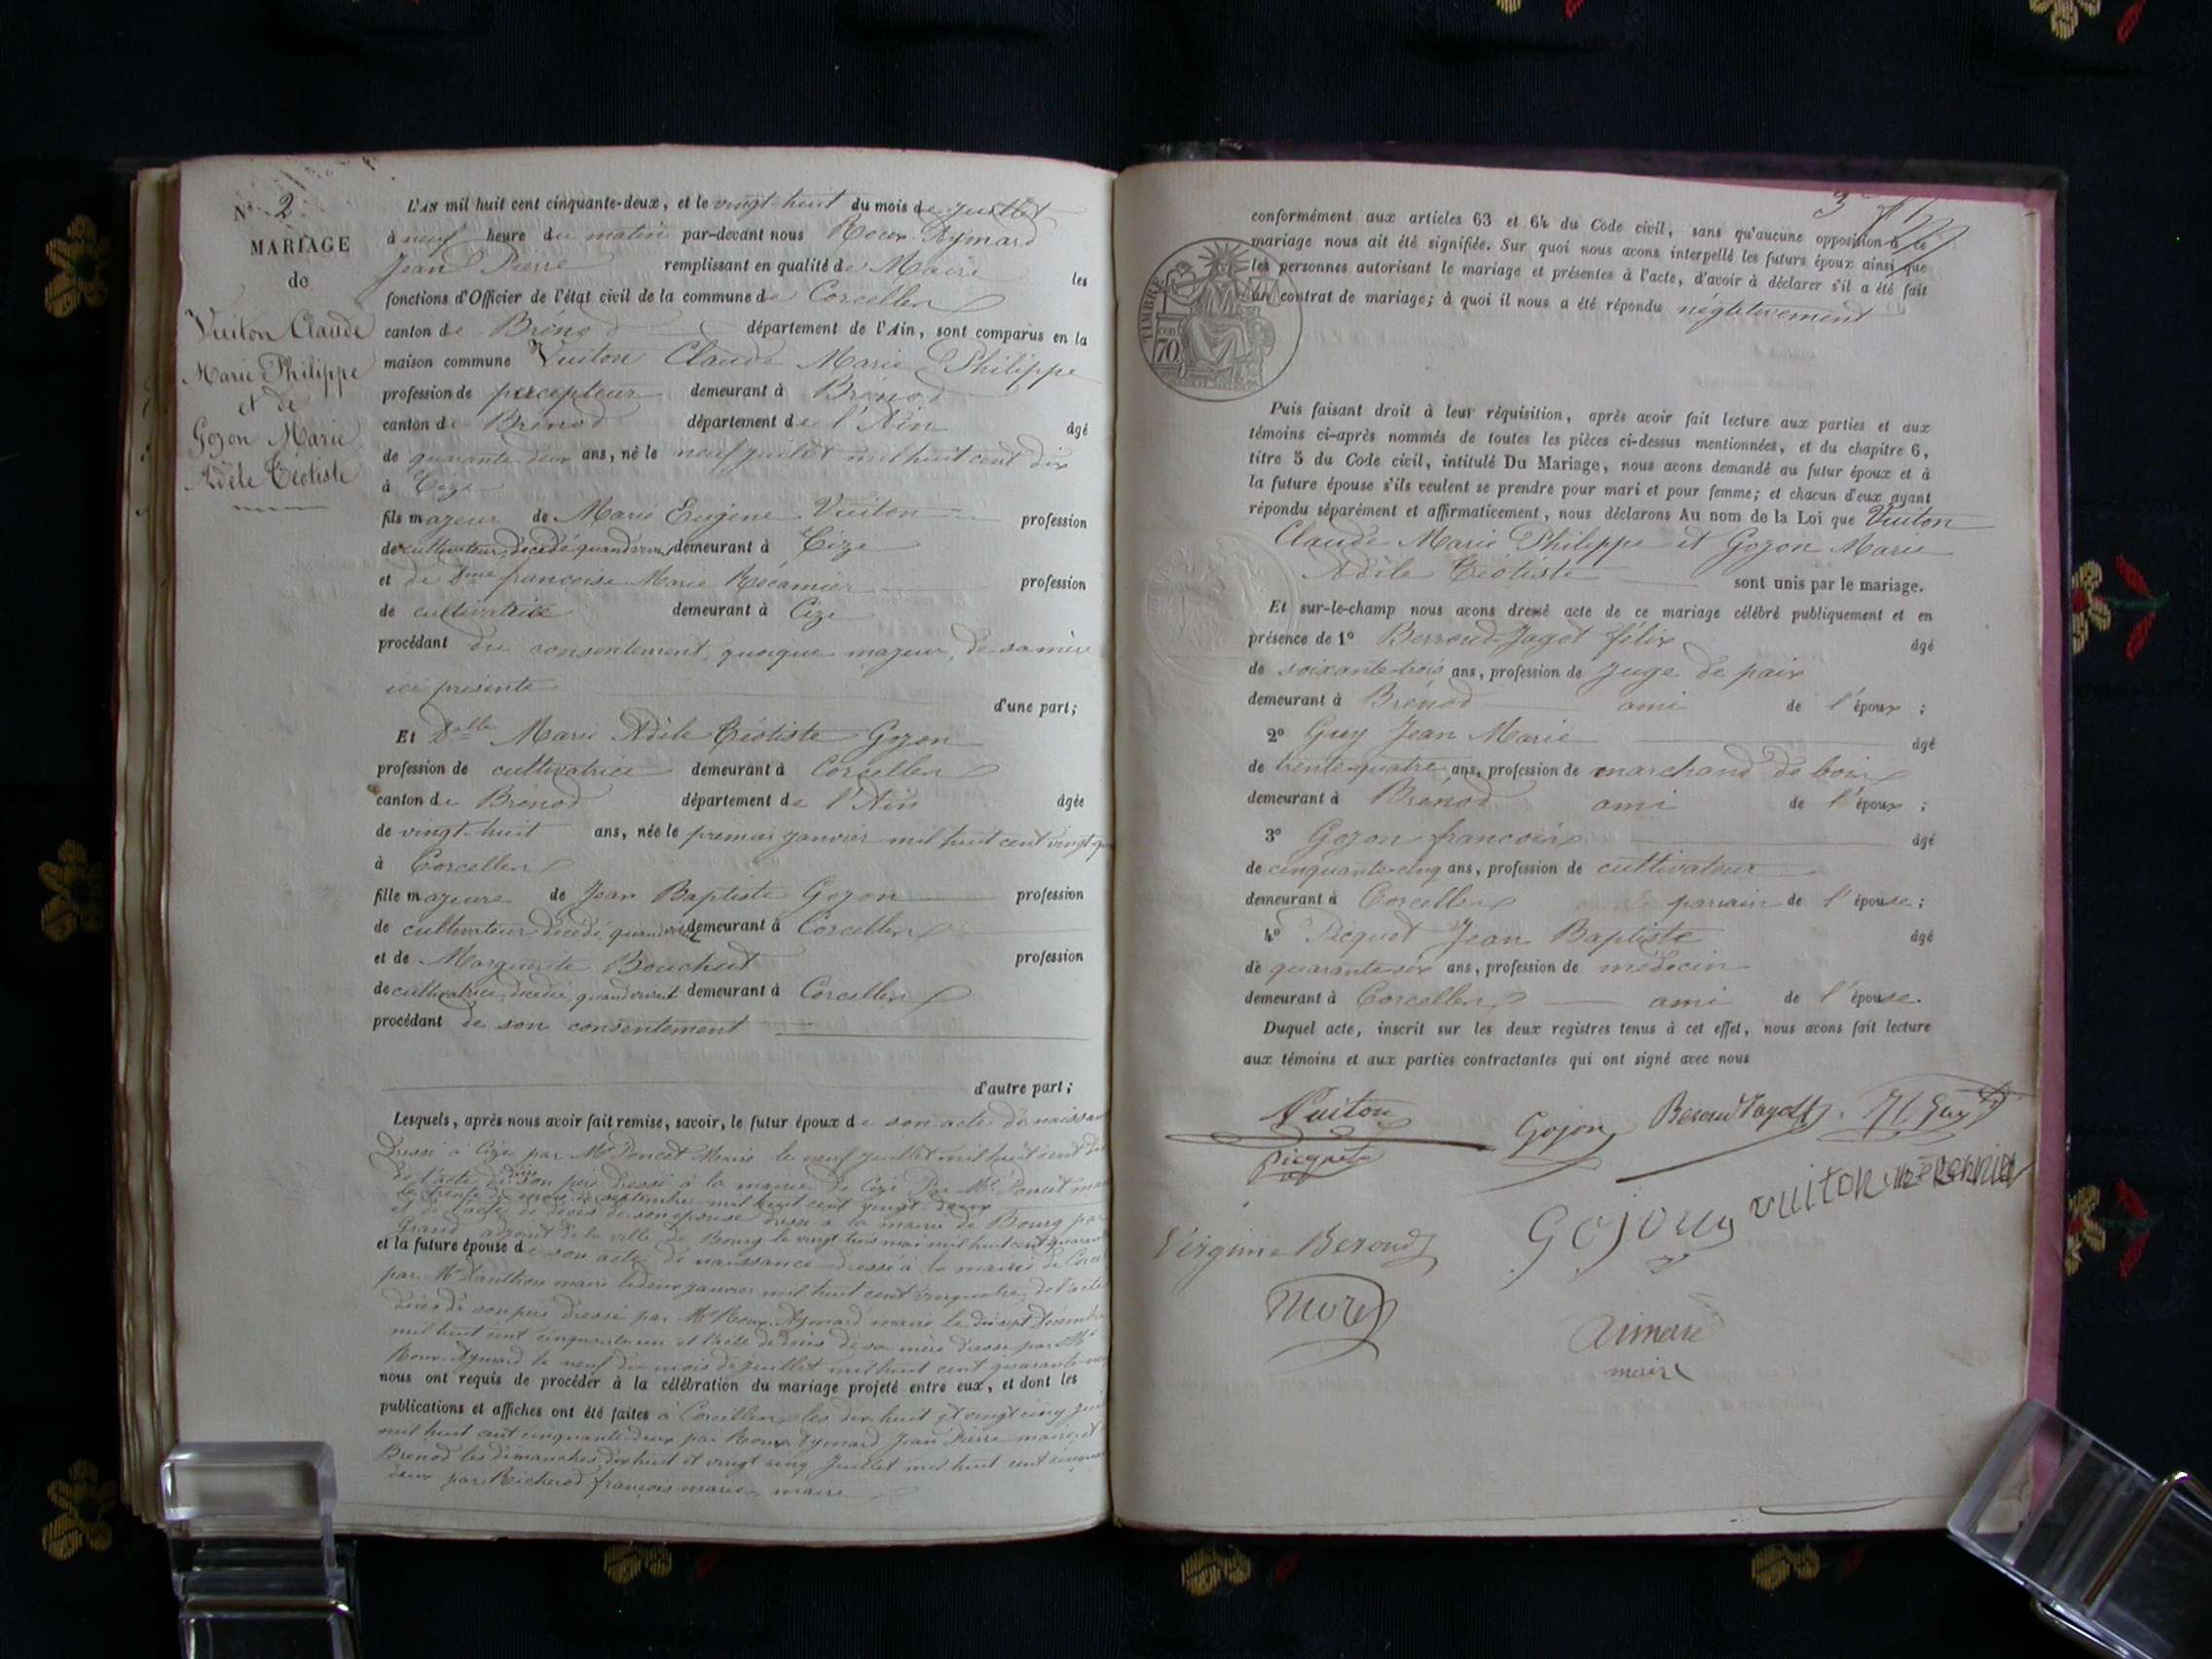 N° 2
MARIAGE
de
Vuiton Claude
Marie Philippe
et de
Gozon Marie
Adèle Téotiste
L'AN mil huit cent cinquante-deux, et le vingt-huit du mois de juillet
à neuf heure du matin par-devant nous Roux-Aymard
Jean Pierre remplissant en qualité de Maire les
fonctions d'Officier de l'état civil de la commune de Corcelles
canton de Brénod département de l'Ain, sont comparus en la
maison commune Vuiton Claude Marie Philippe
profession de percepteur demeurant à Brénod
canton de Brénod département de l'Ain âgé
de quarante deux ans, né le neuf juillet mil huit cent dix
à Cize
fils majeur de Marie Eugène Vuiton profession
de cultivateur, décédé, quand vivai demeurant à Cize
et de Dme françoise Marie Récamier profession
de cultivatrice demeurant à Cize
procédant du consentement, quoique majeur, de sa mère
ici présente
d'une part;
Et Delle Marie Adèle Téotiste Gozon
profession de cultivatrice demeurant à Corcelles
canton de Brénod département de l'Ain âgée
de vingt-huit ans, née le premier janvier mil huit cent vingt
à Corcelles
fille majeure de Jean Baptiste Gozon profession
de cultivateur décédé, quand demeurant à Corcelles
et de Marguerite Bouchut profession
de cultivatrice, décédée, quand vivait demeurant à Corcelles
procédant de son consentement
d'autre part;
Lesquels, après nous avoir fait remise, savoir, le futur époux de son acte de naissan
dressé à Cize par Mr Poncet Maire le neuf juillet mil huit cent dix
de l'acte de son père dressé à la mairie de Cize Par Mr Poncet
le trente du mois de septembre mil huit cent vingt
et de l'acte de décès de son épouse dressé à la mairie de Bourg par
Grand adjoint de la ville de Bourg le vingt trois mai mil huit cent quaran
et la future épouse de son acte de naissance dressé à la mairie de Corc
par Mr maire le deux janvier mil huit cent vingt quatre, de l'acte
décès de son père dressé par Mr Roux-Aymard maire le dix sept décemb
mil huit cent cinquante un et l'acte de décès de sa mère dressé par Mr
Roux-Aymard le neuf du mois de juillet mil huit cent quarante
nous ont requis de procéder à la célébration du mariage projeté entre eux, et dont les
publications et affiches ont été faites à Corcelles les dix huit et vingt cinq jui
mil huit cent cinquante deux par Roux-Aymard Jean Pierre maire, et
Brénod les dimanches dix huit et vingt cinq Juillet mil huit cent cinqua
deux par Richerod françois marie maire
conformément aux articles 63 et 64 du Code civil, sans qu'aucune opposition à ce
mariage nous ait été signifiée. Sur quoi nous avons interpellé les futurs époux ainsi que
les personnes autorisant le mariage et présentes à l'acte, d'avoir à déclarer s'il a été fait
un contrat de mariage; à quoi il nous a été répondu négativement
TIMBRE
70
Puis faisant droit à leur réquisition, après avoir fait lecture aux parties et aux
témoins ci-après nommés de toutes les pièces ci-dessus mentionnées, et du chapitre 6,
titre 5 du Code civil, intitulé Du Mariage, nous avons demandé au futur époux et à
la future épouse s'ils veulent se prendre pour mari et pour femme; et chacun d'eux ayant
répondu séparément et affirmativement, nous déclarons Au nom de la Loi que Vuiton
Claude Marie Philippe et Gozon Marie
Adèle Téotiste sont unis par le mariage.
Et sur-le-champ nous avons dressé acte de ce mariage célébré publiquement et en
présence de 1° Berroud-Jagot félix âgé
de soixante-trois ans, profession de Juge de paix
demeurant à Brénod ami de l'époux ;
2° Guy Jean Marie âgé
de trente-quatre ans, profession de marchand de bois
demeurant à Brénod ami de l'époux ;
3° Gozon françois âgé
de cinquante-cinq ans, profession de cultivateur
demeurant à Corcelles parrain de l'épouse ;
4° Picquet Jean Baptiste âgé
de quarante-six ans, profession de médecin
demeurant à Corcelles ami de l'épouse.
Duquel acte, inscrit sur les deux registres tenus à cet effet, nous avons fait lecture
aux témoins et aux parties contractantes qui ont signé avec nous
Vuiton
Gojon
Picquet
Gojon
Vuiton
Virginie Beroud
Morel
Aimard
maire